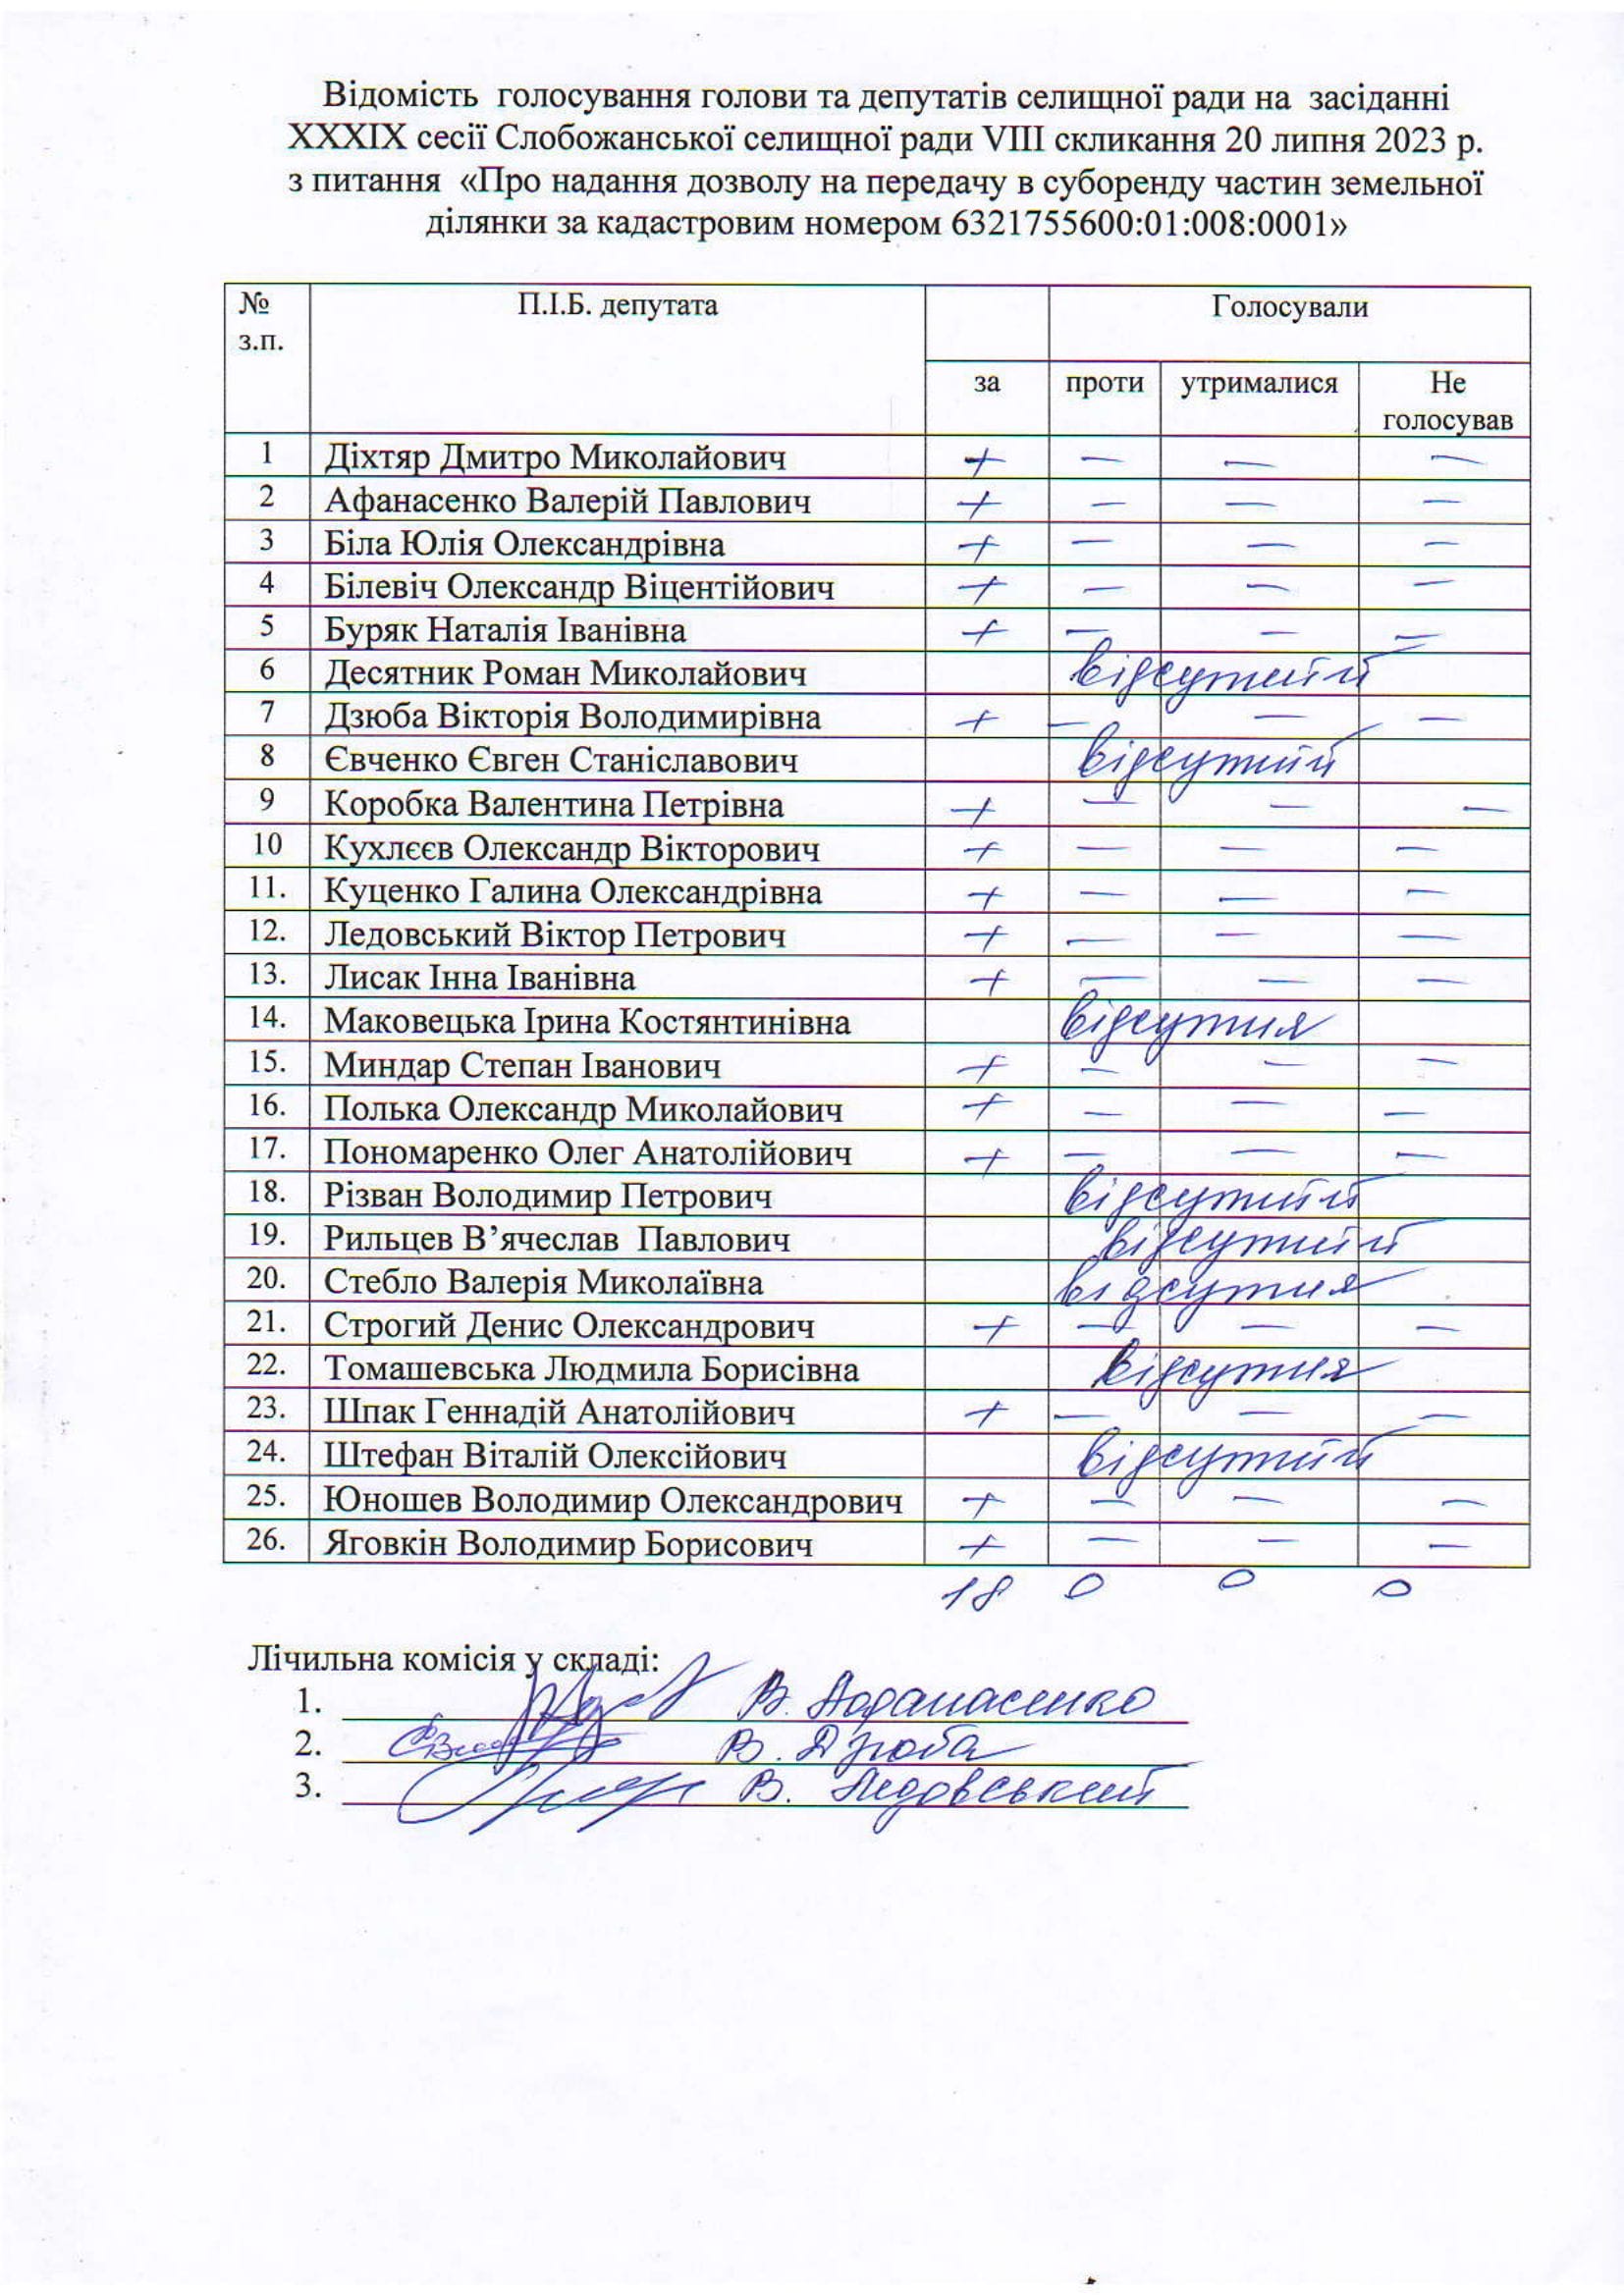 Відомість голосування голови та депутатів селищної ради на засіданні
XXXIX сесії Слобожанської селищної ради VIII скликання 20 липня 2023 р.
з питання «Про надання дозволу на передачу в суборенду частин земельної
ділянки за кадастровим номером 6321755600:01:008:0001»
№ з.п. П.І.Б. депутата Голосували
за проти утрималися Не голосував
1 Діхтяр Дмитро Миколайович + — — —
2 Афанасенко Валерій Павлович + — — —
3 Біла Юлія Олександрівна + — — —
4 Білевіч Олександр Віцентійович + — — —
5 Буряк Наталія Іванівна + — — —
6 Десятник Роман Миколайович відсутній
7 Дзюба Вікторія Володимирівна + — — —
8 Євченко Євген Станіславович відсутній
9 Коробка Валентина Петрівна + — — —
10 Кухлєєв Олександр Вікторович + — — —
11. Куценко Галина Олександрівна + — — —
12. Ледовський Віктор Петрович + — — —
13. Лисак Інна Іванівна + — — —
14. Маковецька Ірина Костянтинівна відсутня
15. Миндар Степан Іванович + — — —
16. Полька Олександр Миколайович + — — —
17. Пономаренко Олег Анатолійович + — — —
18. Різван Володимир Петрович відсутній
19. Рильцев В’ячеслав Павлович відсутній
20. Стебло Валерія Миколаївна відсутня
21. Строгий Денис Олександрович + — — —
22. Томашевська Людмила Борисівна відсутня
23. Шпак Геннадій Анатолійович + — — —
24. Штефан Віталій Олексійович відсутній
25. Юношев Володимир Олександрович + — — —
26. Яговкін Володимир Борисович + — — —
18 0 0 0
Лічильна комісія у складі:
1. В. Афанасенко
2. В. Дзюба
3. В. Ледовський